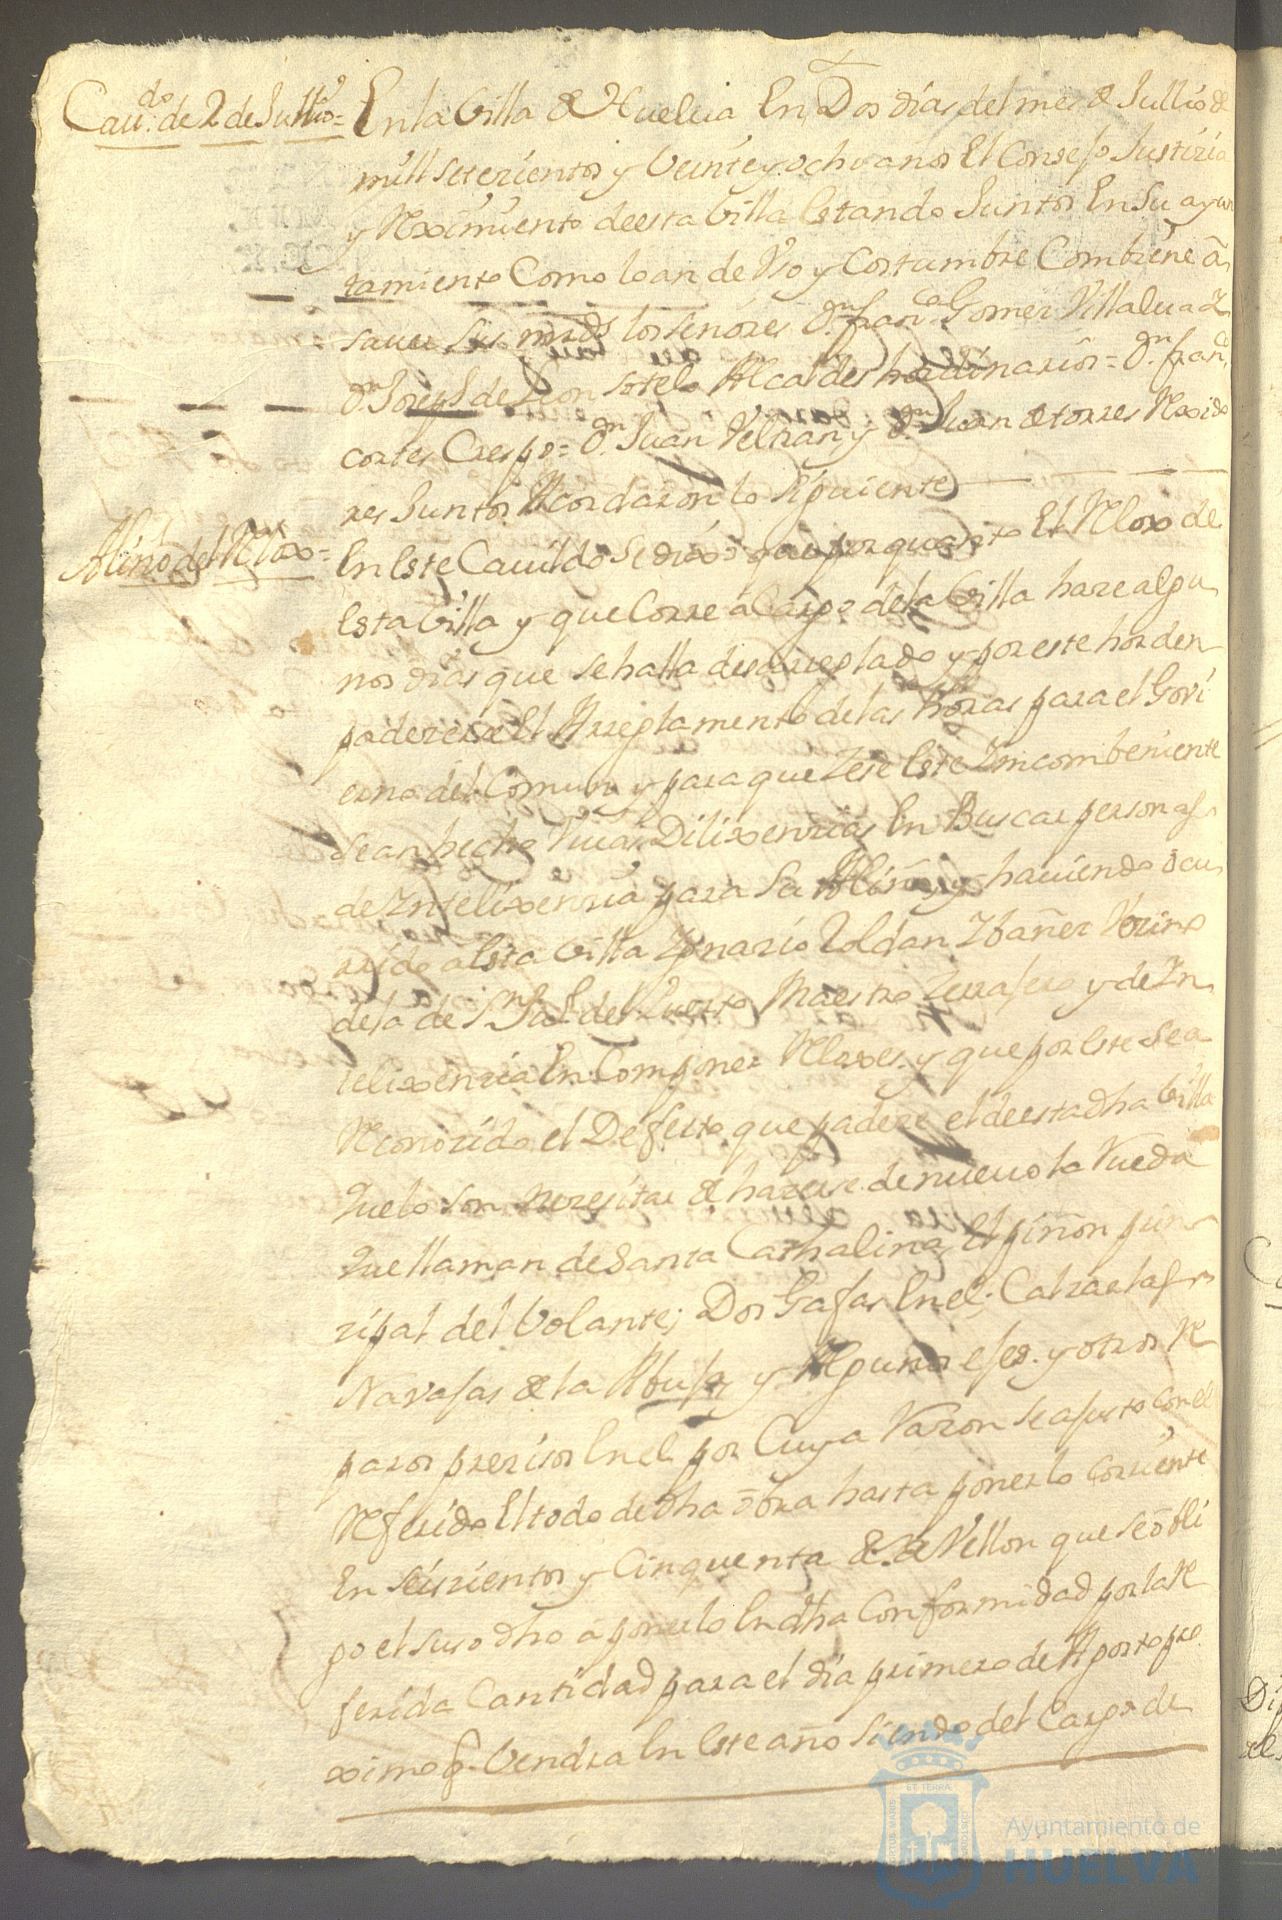 Cau.do de 2 de Jullio =
En la Villa de Huelua En Dos dias del mes de Jullio de
mill setezientos y Veinte y ocho años El Consejo Justizia
y Reximiento de esta Villa Estando Juntos En Su ayun
tamiento Como lo an de Vso y Costumbre Combiene a
sauer sus mrds los señores Dn. franco. Gomez Villalua =
Dn. Joseph de leon sotelo Alcaldes hordinarios = Dn. franco.
cortes Crespo = Dn. Juan Veltran y Dn. Juan de torres Rexido
res Juntos Acordaron lo siguiente
Aliño del Relox =
En Este Cauildo se dixo que por quanto El Relox de
Esta Villa y que Corre a Cargo de la Villa haze algu
nos dias que se halla desarreglado y por este horden
padezer El Arreglamento de las horas para el Govi
erno del Comun y para que Zese Este Incombeniente
se an hecho Viuas Dilixenzias En Buscar personas
de Intelixenzia para Su Aliño y hauiendo ocu
rrido a Esta Villa Ygnazio Roldan Ybañez Vezino
de la de Sn. Juo. del Puerto Maestro Zerrajero y de In
telixenzia En Componer Reloxes y que por Este Se a
Reconozido el Defecto que padeze el de esta dha Villa
que lo son nezesitar de hazerse de nueuo la Rueda
que llaman de Santa Cathalina, El piñon prin
zipal del Volante; Dos Gafas En el; Calzar las
Navajas de la Abuja y Algunos ejes y otros Re
paros prezisos En el por Cuya Razon se ajusto con el
Referido El todo de dha obra hasta ponerlo corriente
En seiszientos y Cinquenta Rs. de Vellon que se obli
go el suso dho a ponerlo En dha Conformidad por la Re
ferida Cantidad para el dia primero de Agosto pro
ximo q. Vendra En Este año siendo del Cargo de
Ayuntamiento de
HUELVA